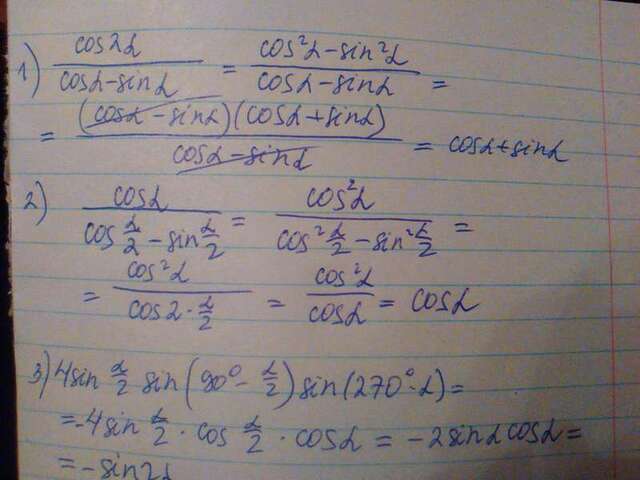 1) cos2α / (cosα - sinα) = (cos²α - sin²α) / (cosα - sinα) =
= (cosα - sinα)(cosα + sinα) / (cosα - sinα) = cosα + sinα
2) cosα / (cos α/2 - sin α/2) = cos²α / (cos² α/2 - sin² α/2) =
= cos²α / (cos 2 · α/2) = cos²α / cosα = cosα
3) 4sin α/2 sin(90° - α/2) sin(270° - α) =
= -4sin α/2 · cos α/2 · cosα = -2sinα cosα =
= -sin2α